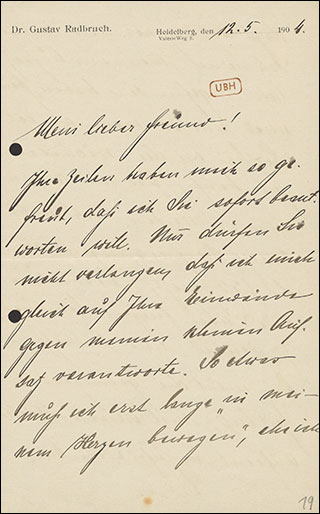 Dr. Gustav Radbruch.
Heidelberg, den 12. 5. 1904.
UBH
Mein lieber Freund!
Ihre Zeilen haben mich so ge-
freut, daß ich Sie sofort beant-
worten will. Nur dürfen Sie
nicht verlangen, daß ich mich
gleich auf Ihre Einwände
gegen meinen kleinen Auf-
satz verantworte. So etwas
muß ich erst lange „in mei-
nem Herzen bewegen“, ehe ich
19